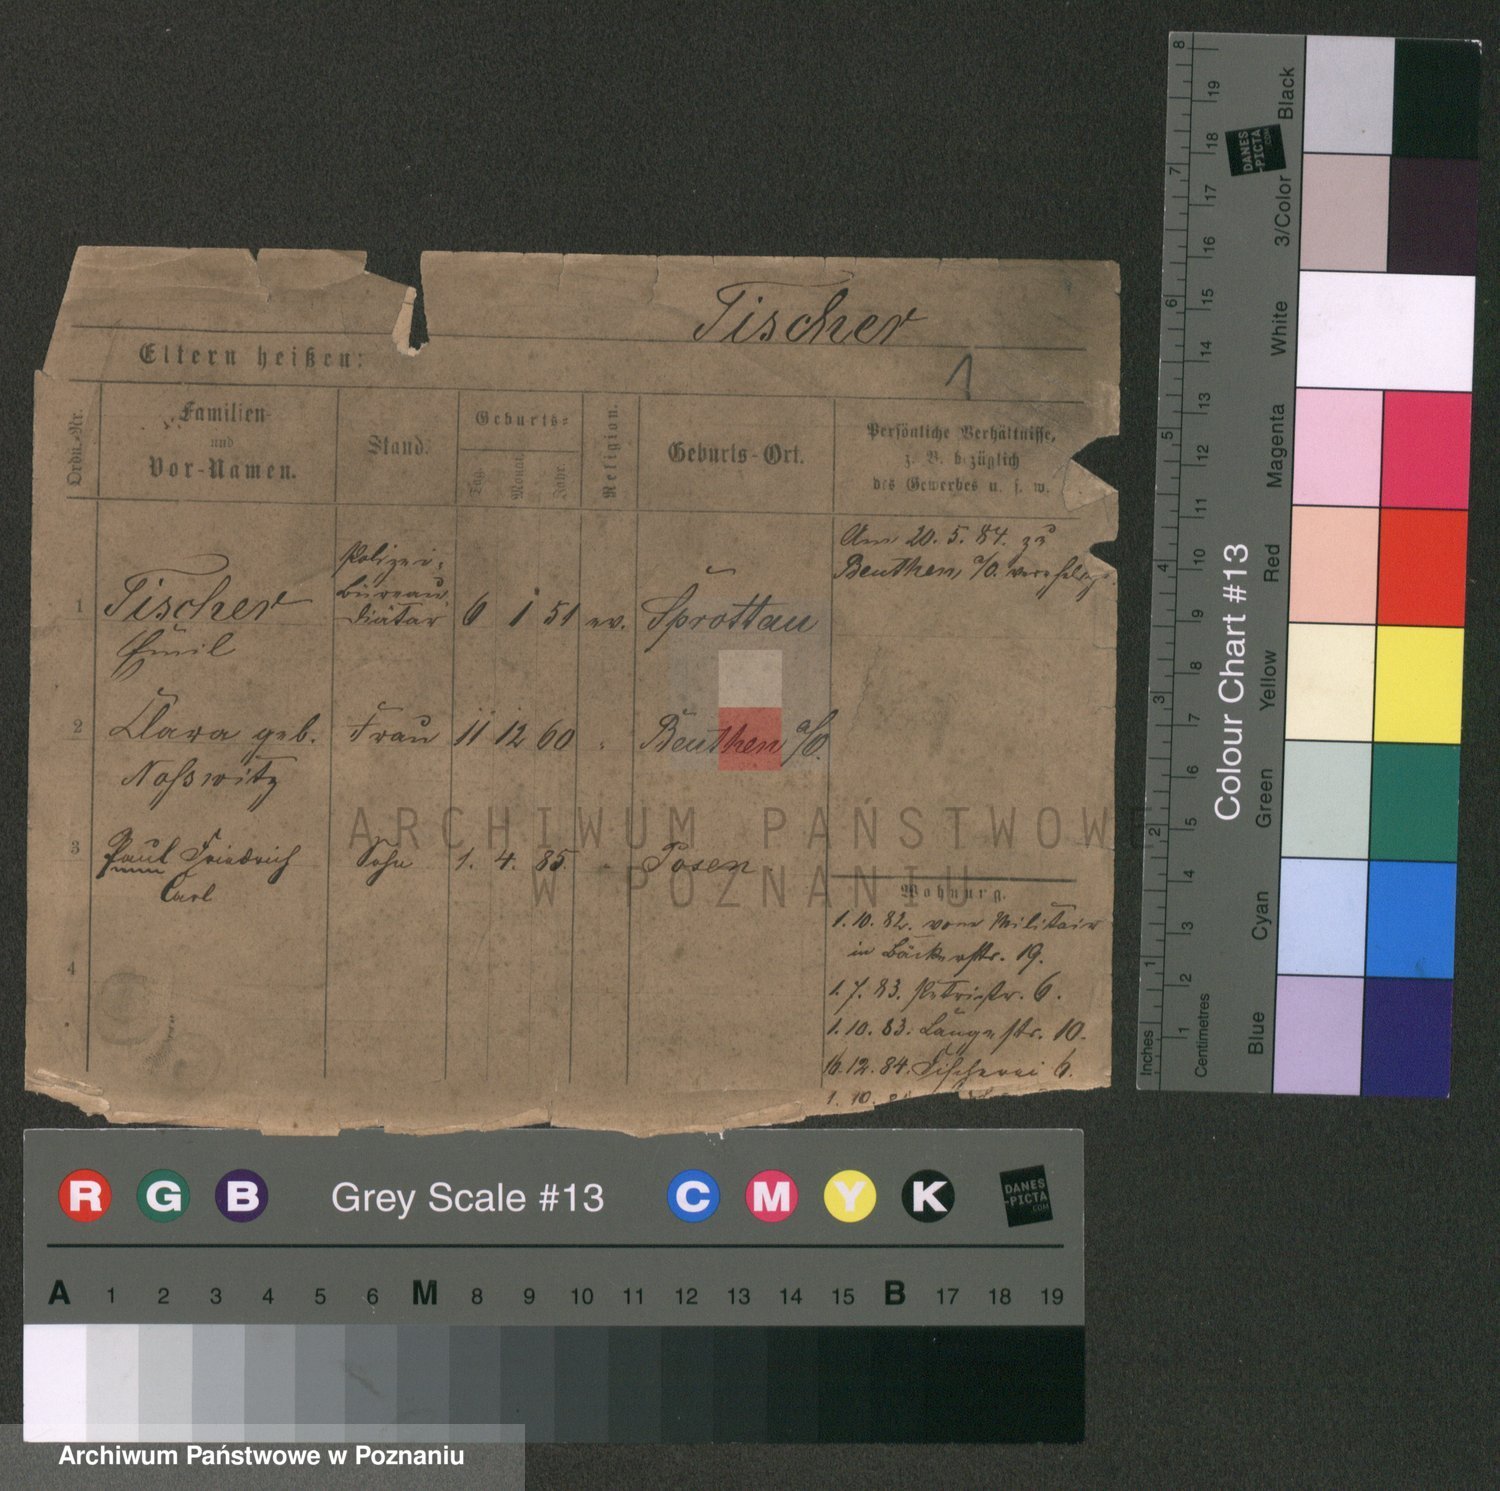 Tischer
1
Eltern heißen:
Ordn.-Nr.
Familien-
und
Vor-Namen.
Stand.
Geburts-
Tag.
Monat.
Jahr.
Religion.
Geburts-Ort.
Persönliche Verhältnisse,
z. B. bezüglich
des Gewerbes u. s. w.
Am 20. 5. 84. zu
Beuthen a/O.
1 Tischer Polizei- 6 1 51 ev. Sprottau
Büreau
Diätar
Emil
2 Clara geb. Frau 11 12 60 " Beuthen a/O.
Nosswitz
3 Paul Friedrich Sohn 1. 4. 85. " Posen
Carl
4
Wohnung.
1. 10. 82. vom Militair
in Bäckerstr. 19.
1. 7. 83. Petristr. 6.
1. 10. 83. Langestr. 10.
16. 12. 84. Fischerei 6.
1. 10.
ARCHIWUM PAŃSTWOWE
W POZNANIU
Colour Chart #13
Blue Cyan Green Yellow Red Magenta White 3/Color Black
Inches 1 2 3 4 5 6 7 8
Centimetres 1 2 3 4 5 6 7 8 9 10 11 12 13 14 15 16 17 18 19
DANES
-PICTA
.COM
R G B Grey Scale #13 C M Y K
DANES
-PICTA
.COM
A 1 2 3 4 5 6 M 8 9 10 11 12 13 14 15 B 17 18 19
Archiwum Państwowe w Poznaniu